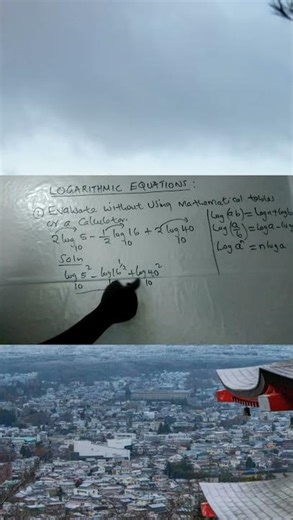 LOGARITHMIC EQUATIONS:
① Evaluate without using Mathematical tables
or a Calculator.
2 log₁₀ 5 - 1/2 log₁₀ 16 + 2 log₁₀ 40
Soln
log₁₀ 5² - log 16^1/2 + log₁₀ 40²
log(ab) = loga + logb
log(a/b) = loga - log
log aⁿ = nloga